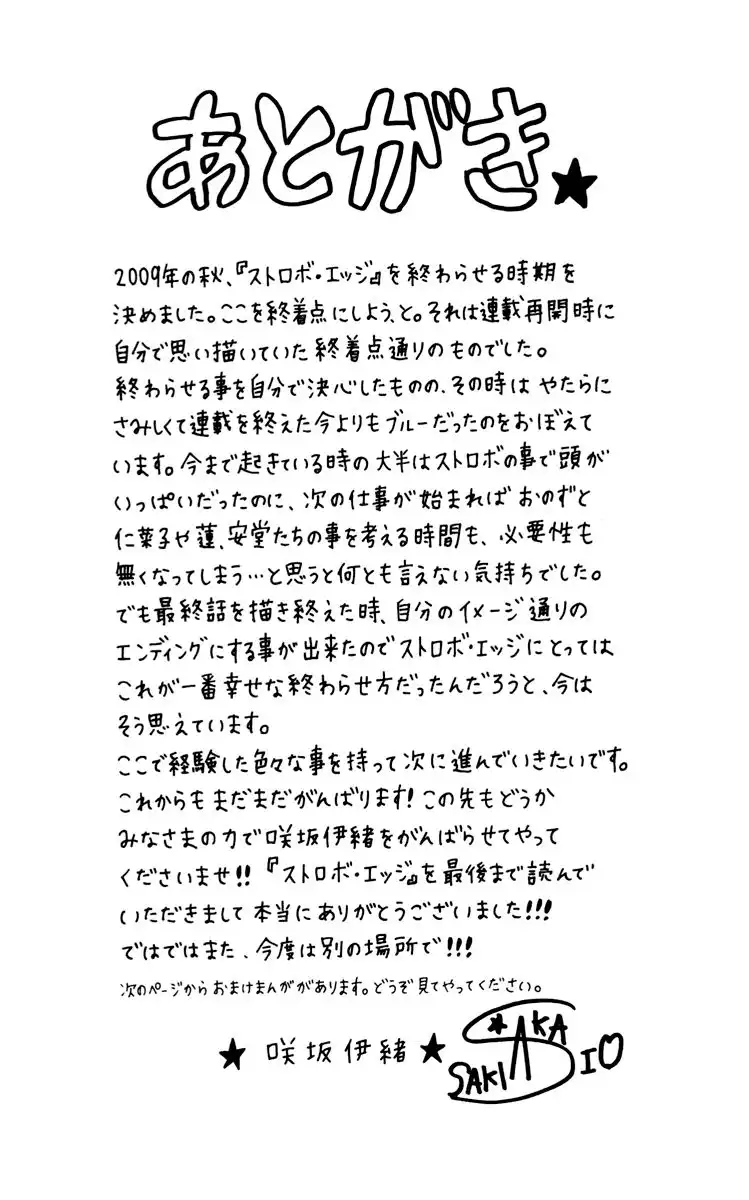 あとがき★
2009年の秋、『ストロボ・エッジ』を終わらせる時期を
決めました。ここを終着点にしよう、と。それは連載再開時に
自分で思い描いていた終着点通りのものでした。
終わらせる事を自分で決心したものの、その時は やたらに
さみしくて連載を終えた今よりもブルーだったのをおぼえて
います。今まで起きている時の大半はストロボの事で頭が
いっぱいだったのに、次の仕事が始まれば おのずと
仁菜子や蓮、安堂たちの事を考える時間も、必要性も
無くなってしまう…と思うと何とも言えない気持ちでした。
でも最終話を描き終えた時、自分のイメージ通りの
エンディングにする事が出来たのでストロボ・エッジにとっては
これが一番幸せな終わらせ方だったんだろうと、今は
そう思えています。
ここで経験した色々な事を持って次に進んでいきたいです。
これからも まだまだがんばります!この先もどうか
みなさまの力で咲坂伊緒をがんばらせてやって
くださいませ!!『ストロボ・エッジ』を最後まで読んで
いただきまして本当にありがとうございました!!!
ではではまた、今度は別の場所で!!!
次のページからおまけまんががあります。どうぞ見てやってください。
★ 咲坂伊緒 ★
SAKISAKA IO